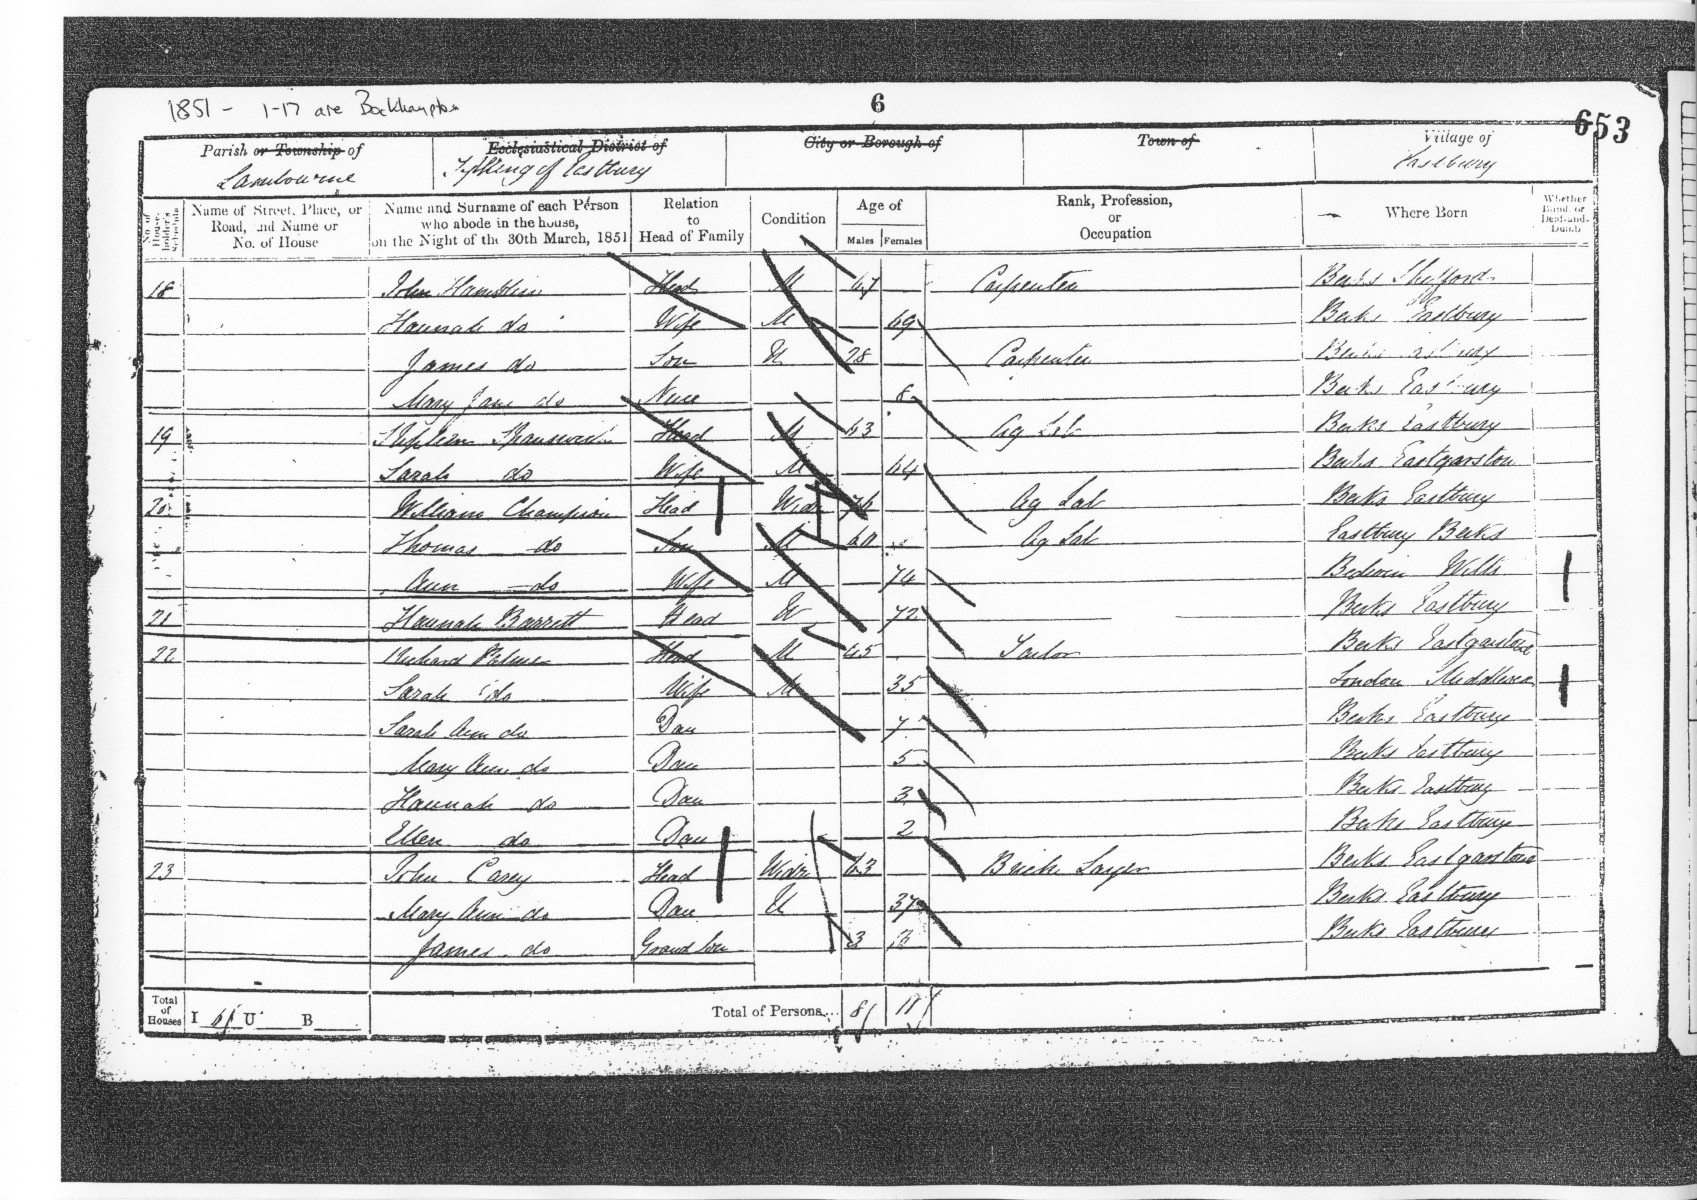 1851 - 1-17 are Bockhampton
6
653
Parish or Township of
Ecclesiastical District of
City or Borough of
Town of
Village of
Lambourne
Tything of Eastbury
Eastbury
No. of House-holder's Schedule
Name of Street, Place, or Road, and Name or No. of House
Name and Surname of each Person who abode in the house, on the Night of the 30th March, 1851
Relation to Head of Family
Condition
Age of
Males
Females
Rank, Profession, or Occupation
Where Born
Whether Blind, or Deaf-and-Dumb
18 John Hamblin Head M 67 Carpenter Berks Shefford
Hannah do Wife M 69 Berks Eastbury
James do Son U 28 Carpenter Berks Eastbury
Mary Jane do Niece 8 Berks Eastbury
19 Stephen Head M 63 Ag Lab Berks Eastbury
Sarah do Wife M 64 Berks Eastgarston
20 William Champion Head Widr 76 Ag Lab Berks Eastbury
Thomas do Son M Ag Lab Eastbury Berks
Ann do Wife M 74 Bedwin Wilts
21 Hannah Barrett Head W 72 Berks Eastbury
22 Richard Palmer Head M 45 Tailor Berks Eastgarston
Sarah do Wife M 35 London Middlesex
Sarah Ann do Dau 7 Berks Eastbury
Mary Ann do Dau 5 Berks Eastbury
Hannah do Dau 3 Berks Eastbury
Ellen do Dau 2 Berks Eastbury
23 John Casey Head Widr 63 Brick Layer Berks Eastgarston
Mary Ann do Dau U 37 Berks Eastbury
James do Grand Son 3 Berks Eastbury
Total of Houses I 6 U B
Total of Persons... 8 11